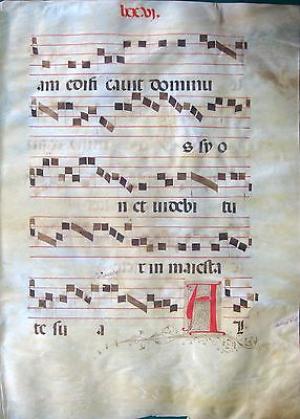 lxxvi.
am edifi cauit dominu
s syo
n et uidebi tu
r in maiesta
te su a A l